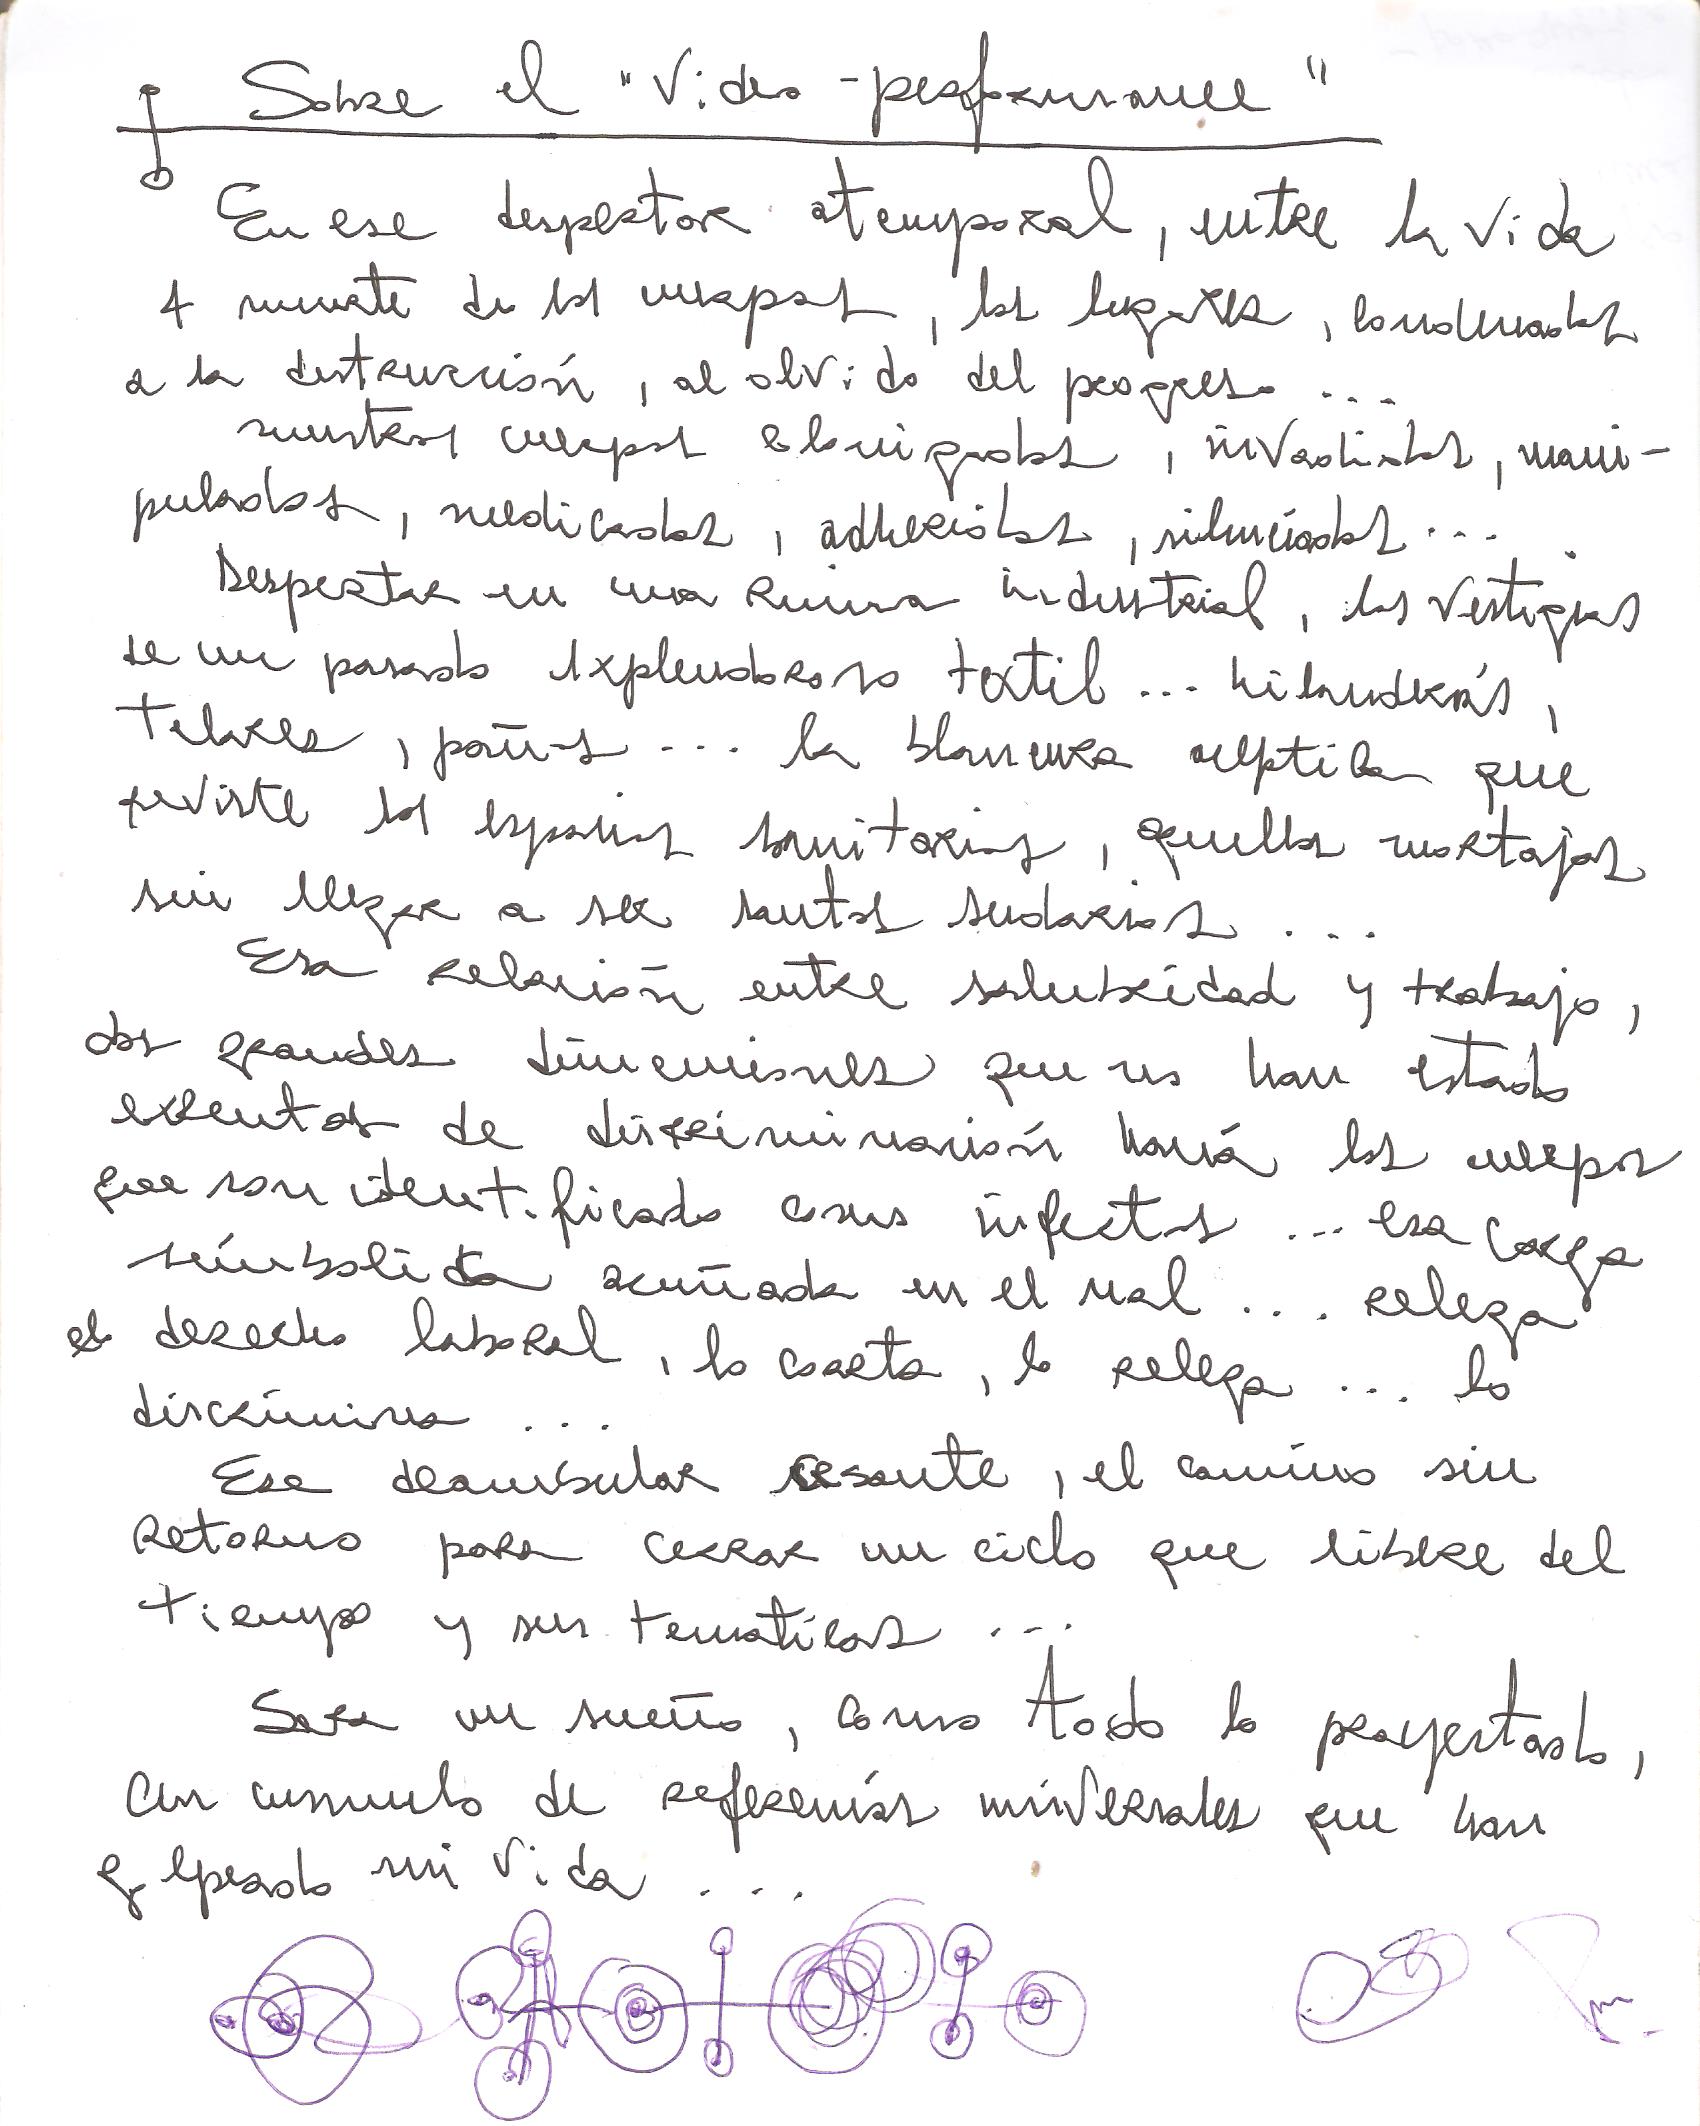 Sobre el "Video-performance"
En ese despertar atemporal, entre la vida
y muerte de los cuerpos, los lugares, condenados
a la destrucción, al olvido del progreso ...
nuestros cuerpos colonizados, invadidos, mani-
pulados, medicados, adheridos, silenciados ...
Despertar en una Ruina industrial, los vestigios
de un pasado explendoroso textil ... hilanderas,
telares, paños ... la blancura aceptica que
reviste los espacios sanitarios, aquellas mortajas
sin llegar a ser santos sudarios ...
Esa relación entre salubridad y trabajo,
dos grandes dimensiones que no han estado
exentas de discriminación hacia los cuerpos
que son identificado como infectos ... esa carga
simbolica acuñada en el mal ... relega
el derecho laboral, lo coarta, lo relega ... lo
discrimina ...
Ese deambular cesante, el camino sin
retorno para cerrar un ciclo que libere del
tiempo y sus tematicas ...
Sera un sueño, como todo lo proyectado,
un cumulo de referencias universales que han
golpeado mi vida ...